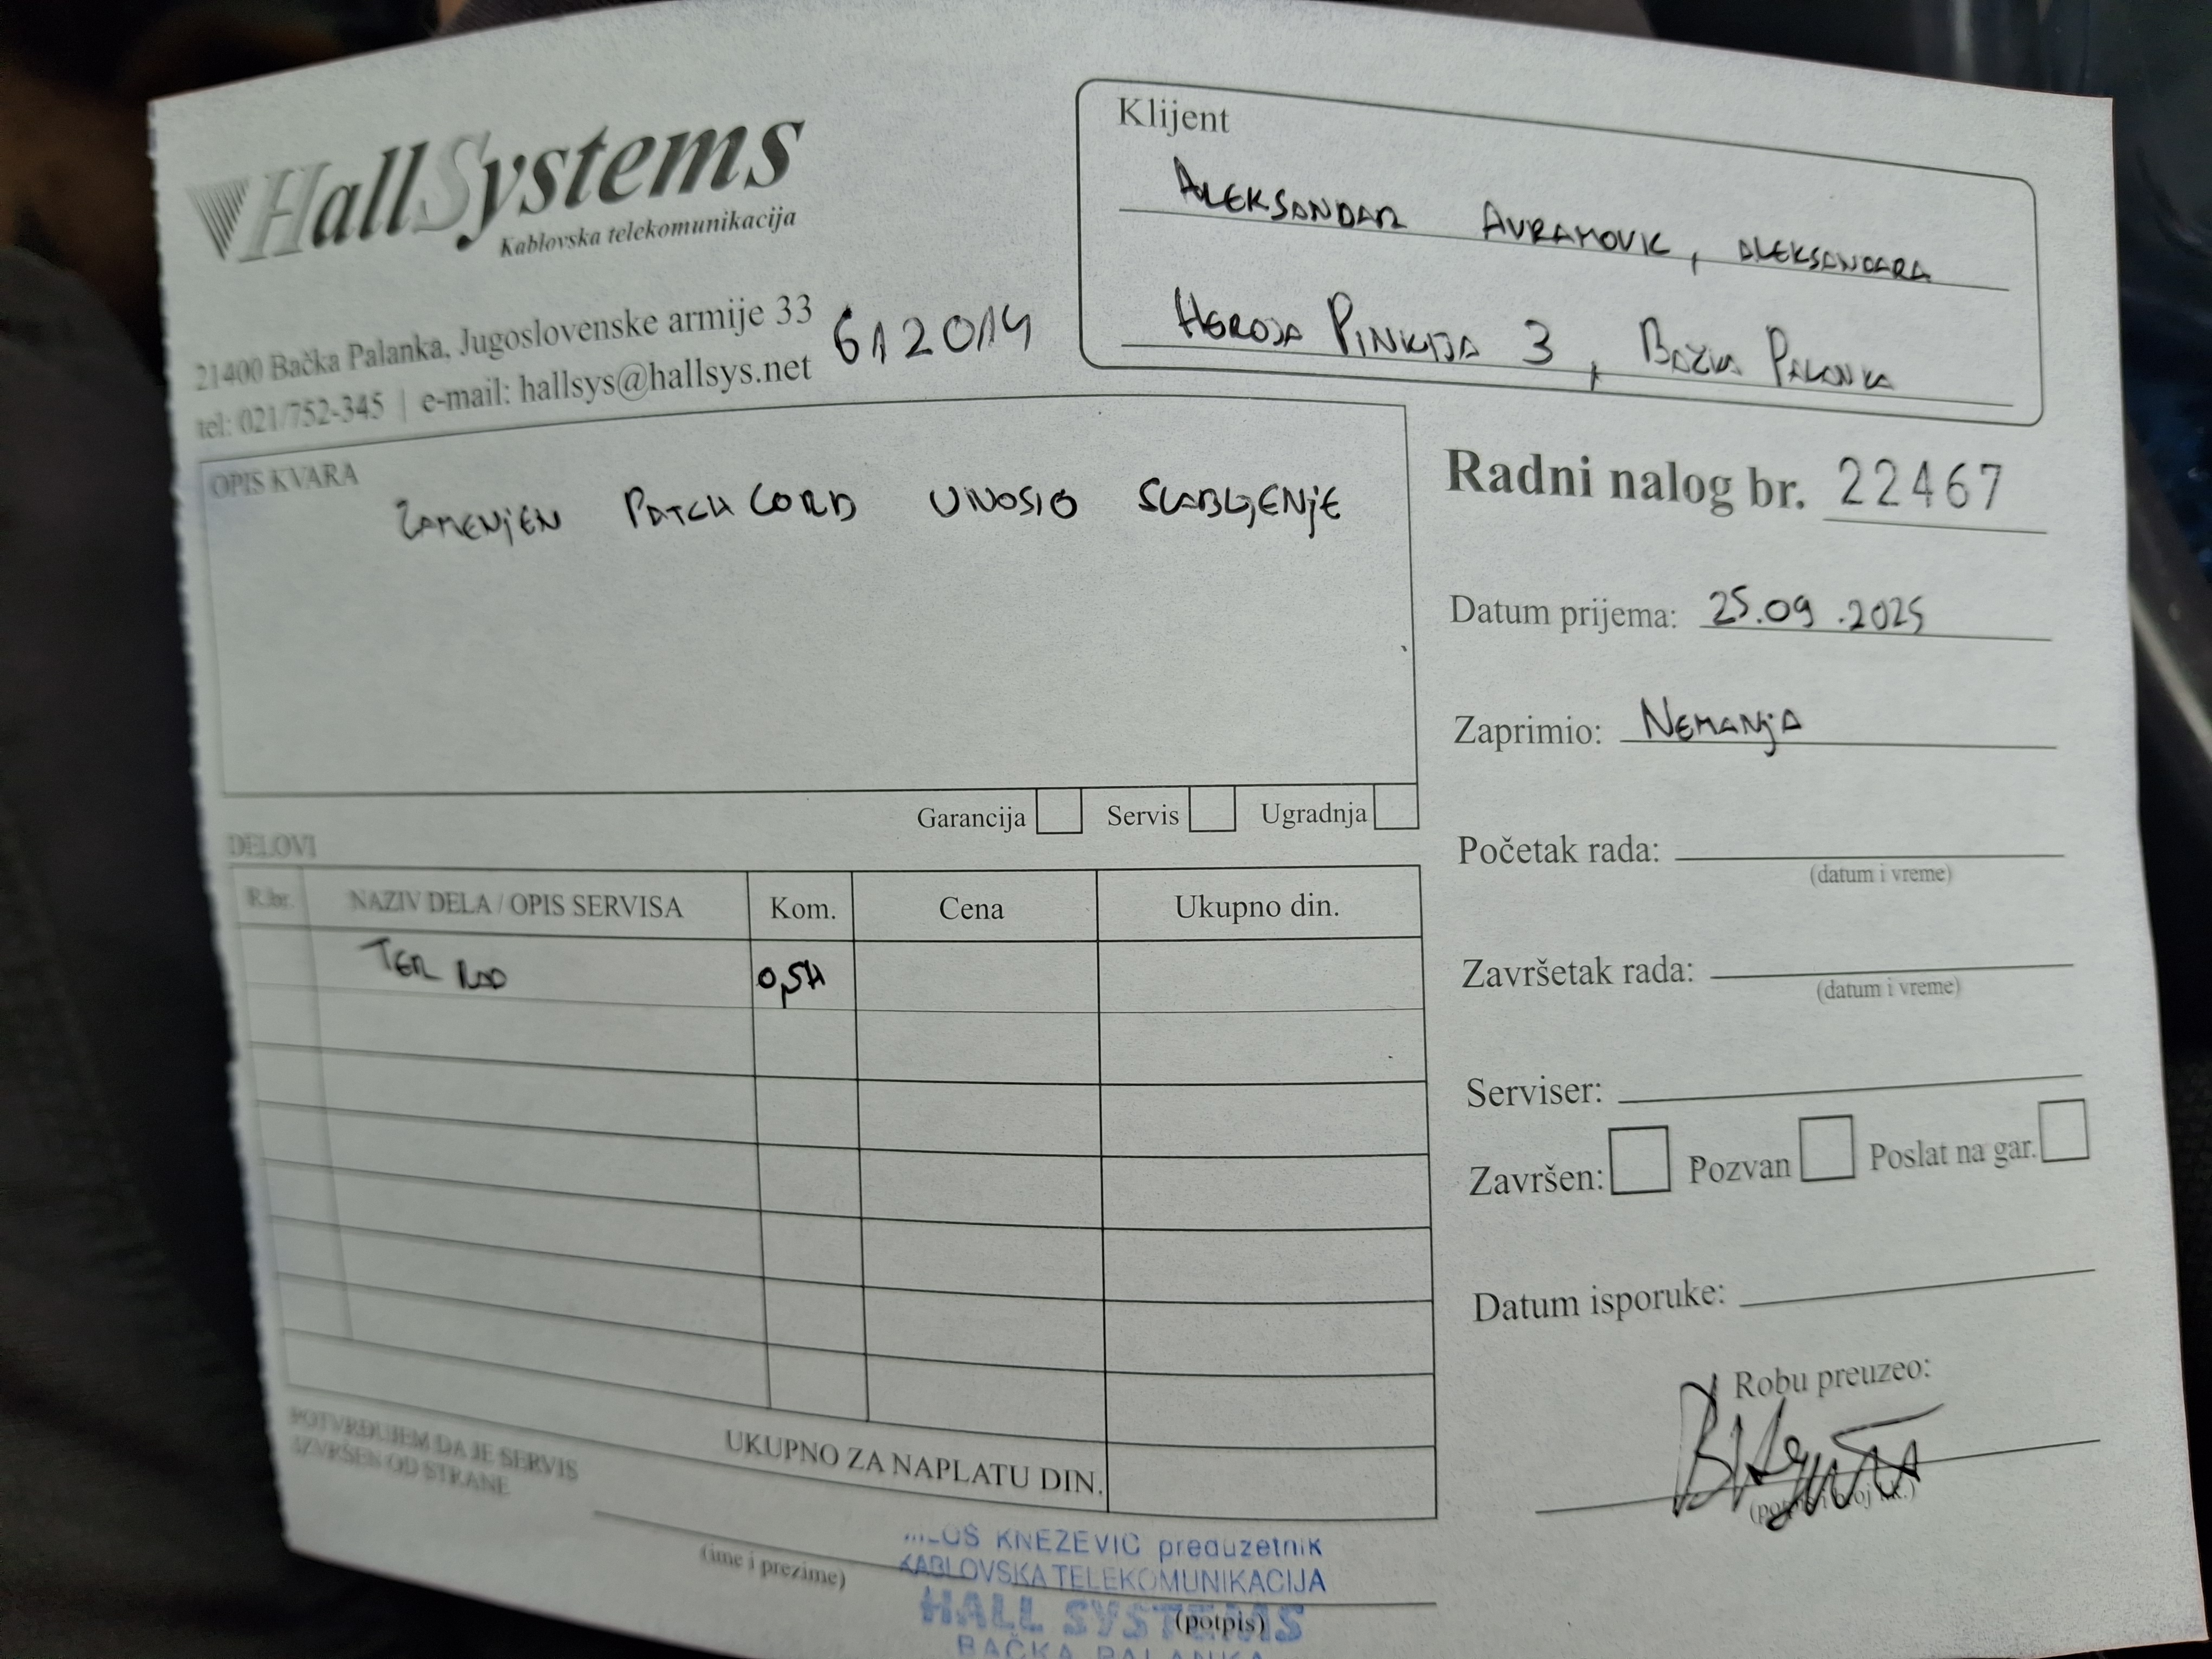 HallSystems
Kablovska telekomunikacija
21400 Bačka Palanka, Jugoslovenske armije 33
tel: 021/752-345 | e-mail: hallsys@hallsys.net
612014
Klijent
ALEKSANDAR AVRAMOVIC, ALEKSANDARA
HEROJA PINKIJA 3, BAČKA PALANKA
OPIS KVARA
ZAMENJEN PATCH CORD UNOSIO SLABLJENJE
Garancija Servis Ugradnja
Radni nalog br. 22467
Datum prijema: 25.09.2025
Zaprimio: NEMANJA
Početak rada:
(datum i vreme)
Završetak rada:
(datum i vreme)
Serviser:
Završen: Pozvan Poslat na gar.
Datum isporuke:
Robu preuzeo:
DELOVI
R.br. NAZIV DELA / OPIS SERVISA Kom. Cena Ukupno din.
TER RAD 0,5H
UKUPNO ZA NAPLATU DIN.
POTVRĐUJEM DA JE SERVIS
IZVRŠEN OD STRANE
(ime i prezime)
(potpis)
KNEZEVIC preduzetnik
KABLOVSKA TELEKOMUNIKACIJA
HALL SYSTEMS
BAČKA PALANKA